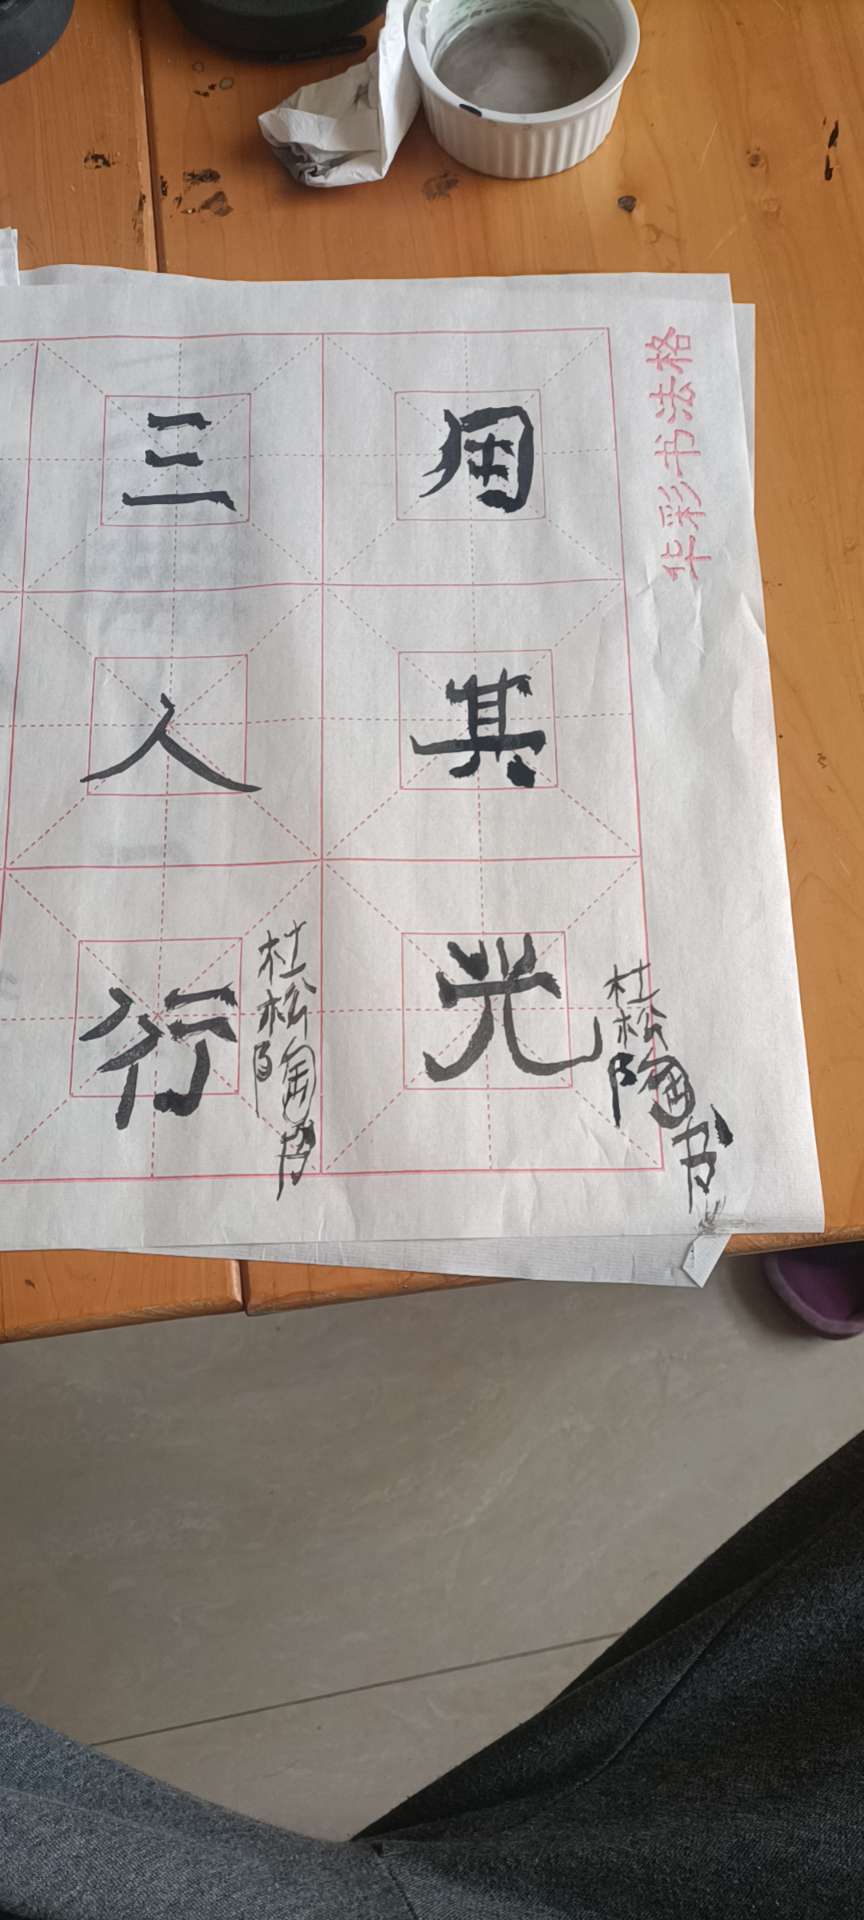 华彩书法格
用其光
杜松陶书
三人行
杜松陶书